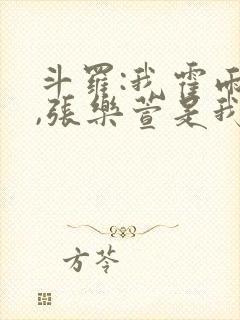 斗羅:我霍雨
,張樂萱是我
方苓